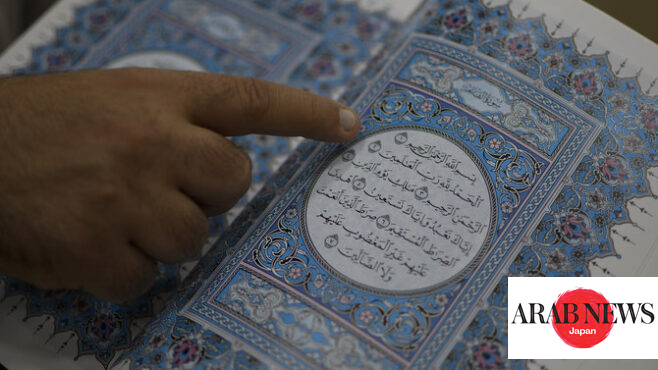 سورة الفاتحة
بِسْمِ اللَّهِ الرَّحْمَٰنِ الرَّحِيمِ ١
الْحَمْدُ لِلَّهِ رَبِّ الْعَٰلَمِينَ ٢
الرَّحْمَٰنِ الرَّحِيمِ ٣ مَٰلِكِ يَوْمِ الدِّينِ ٤
إِيَّاكَ نَعْبُدُ وَإِيَّاكَ نَسْتَعِينُ ٥ اهْدِنَا
الصِّرَٰطَ الْمُسْتَقِيمَ ٦ صِرَٰطَ الَّذِينَ أَنْعَمْتَ
عَلَيْهِمْ غَيْرِ الْمَغْضُوبِ عَلَيْهِمْ
وَلَا الضَّالِّينَ ٧
ARAB NEWS
Japan